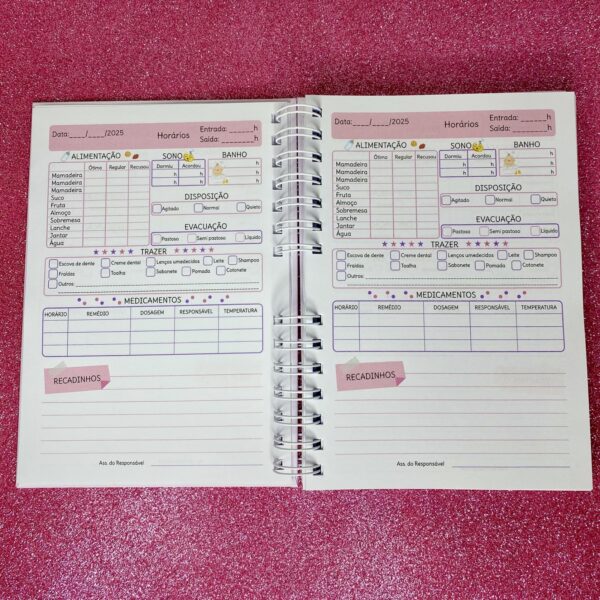 Data:____/____/2025 Horários Entrada: ______h
Saída: ________h
ALIMENTAÇÃO SONO BANHO
Ótimo Regular Recusou Dormiu Acordou h
Mamadeira h h h
Mamadeira h h h
Mamadeira
Suco DISPOSIÇÃO
Fruta
Almoço Agitado Normal Quieto
Sobremesa
Lanche EVACUAÇÃO
Jantar Pastoso Semi pastoso Líquido
Água
TRAZER
Escova de dente Creme dental Lenços umedecidos Leite Shampoo
Fraldas Toalha Sabonete Pomada Cotonete
Outros:
MEDICAMENTOS
HORÁRIO REMÉDIO DOSAGEM RESPONSÁVEL TEMPERATURA
RECADINHOS
Ass. do Responsável
Data:____/____/2025 Horários Entrada: ______h
Saída: ________h
ALIMENTAÇÃO SONO BANHO
Ótimo Regular Recusou Dormiu Acordou h
Mamadeira h h h
Mamadeira h h h
Mamadeira
Suco DISPOSIÇÃO
Fruta
Almoço Agitado Normal Quieto
Sobremesa
Lanche EVACUAÇÃO
Jantar Pastoso Semi pastoso Líquido
Água
TRAZER
Escova de dente Creme dental Lenços umedecidos Leite Shampoo
Fraldas Toalha Sabonete Pomada Cotonete
Outros:
MEDICAMENTOS
HORÁRIO REMÉDIO DOSAGEM RESPONSÁVEL TEMPERATURA
RECADINHOS
Ass. do Responsável